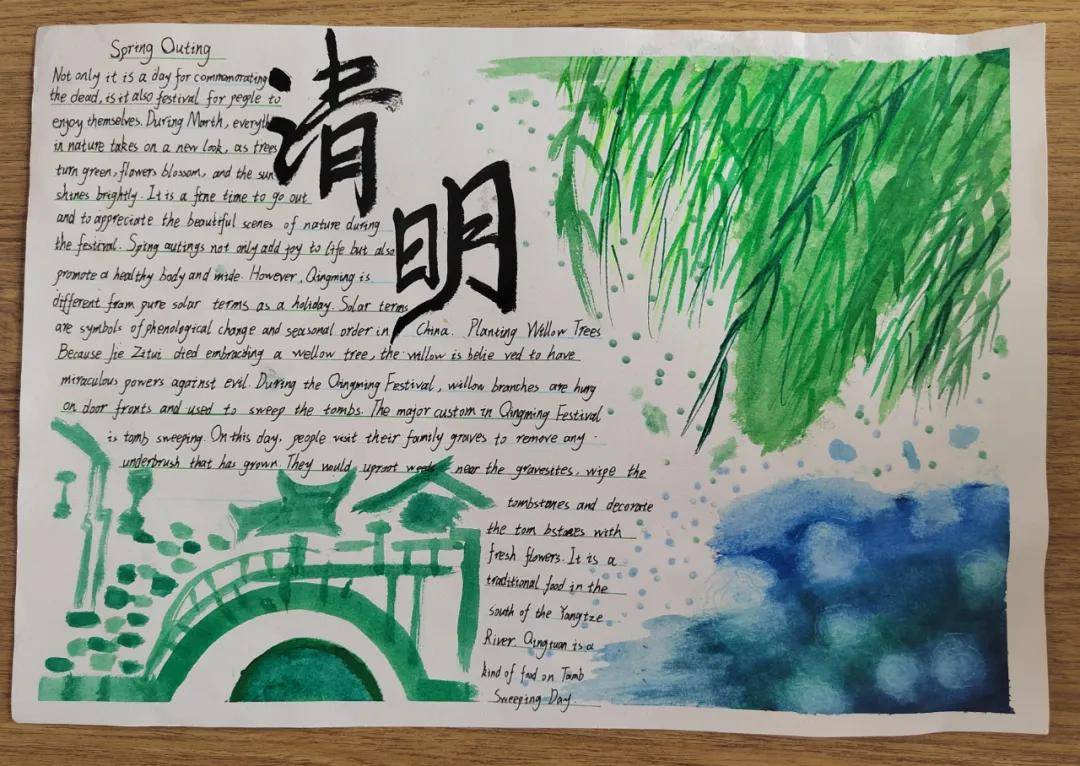 Spring Outing
清明
Not only it is a day for commemorating
the dead, is it also festival for people to
enjoy themselves. During March, everyth
in nature takes on a new look, as trees
turn green, flowers blossom, and the sun
shines brightly. It is a fine time to go out
and to appreciate the beautiful scenes of nature during
the festival. Spring outings not only add joy to life but also
promote a healthy body and mide. However, Qingming is
different from pure solar terms as a holiday. Solar terms
are symbols of phenological change and seasonal order in China. Planting Willow Trees
Because Jie Zitui died embracding a wellow tree, the willow is belie ved to have
miraculous powers against evil. During the Qingming Festival, willow branches are hung
on door fronts and used to sweep the tombs. The major custom in Qingming Festival
is tomb sweeping. On this day, people visit their family graves to remove any
underbrush that has grown. They would uproot weeds near the gravesites, wipe the
tombstones and decorate
the tom bstones with
fresh flowers. It is a
traditional food in the
south of the Yangtze
River. Qingtuan is a
kind of food on Tomb
Sweeping Day.